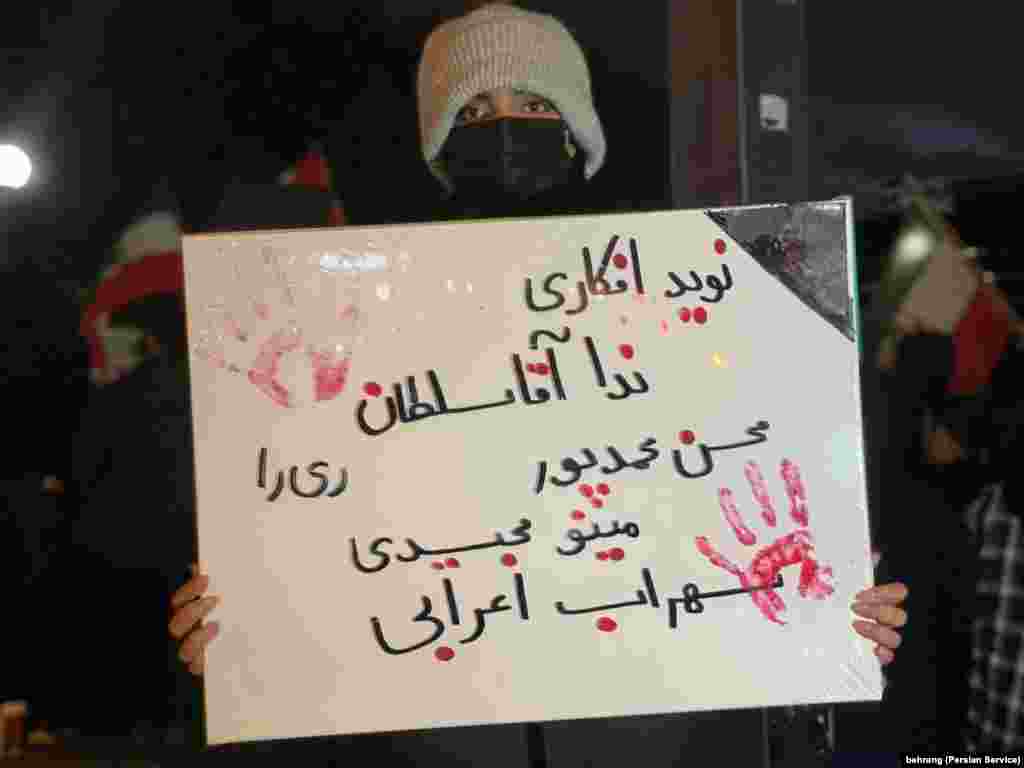 نوید افکاری
ندا آقاسلطان
محسن محمدپور
ری را
مینو مجیدی
سهراب اعرابی
behrang (Persian Service)